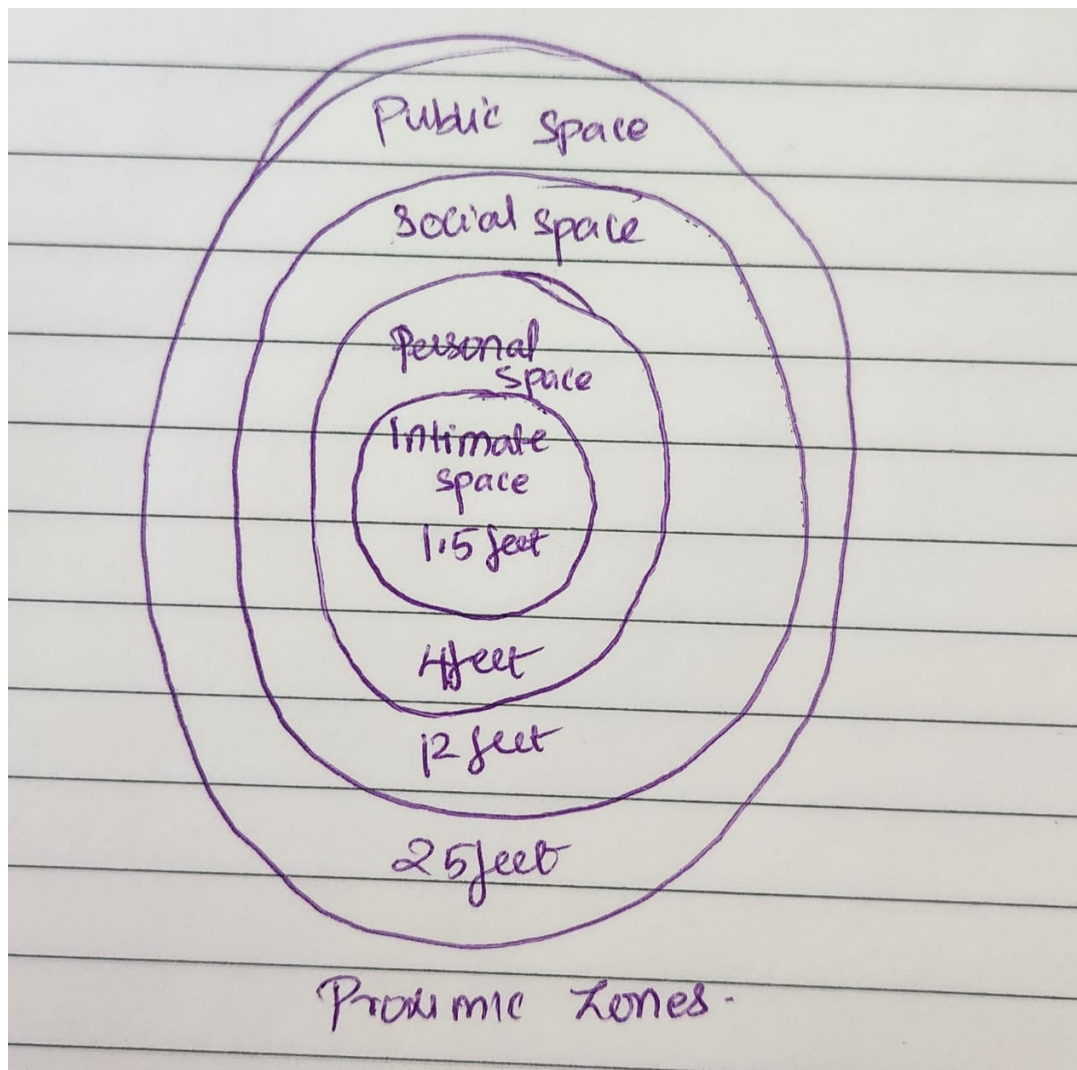 Public space
Social space
Personal
space
Intimate
space
1.5 feet
4feet
12 feet
25feet
Proximic Zones.